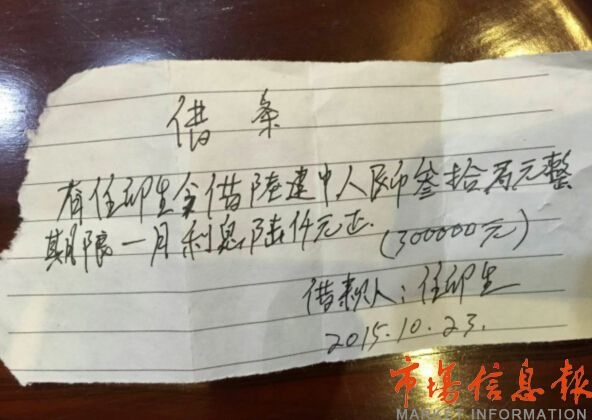 借条
有任印生今借陆建中人民币叁拾万元整
期限一月利息陆仟元正.
(300000元)
借款人:任印生
2015.10.23.
市场信息報
MARKET INFORMATION